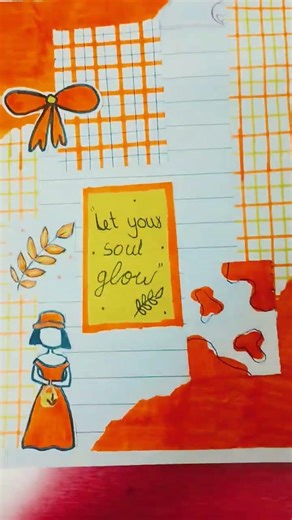 "Let your
soul
glow"